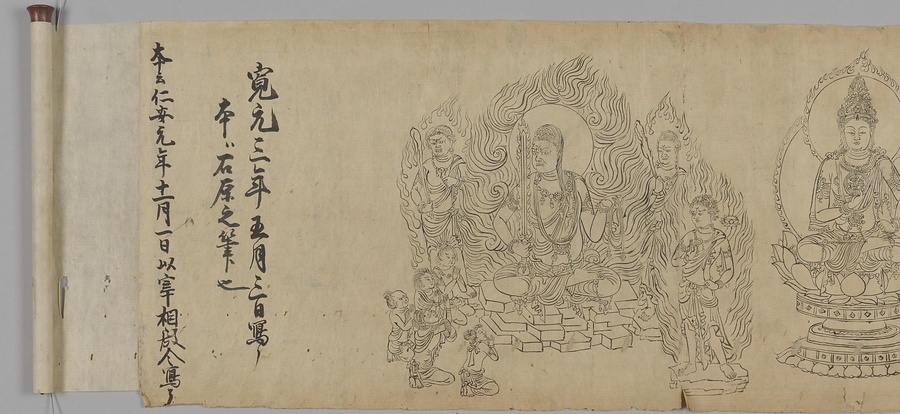 寛元三年五月三日寫了
本ハ石原之筆也
本云仁安元年十一月一日以宰相殿令寫了